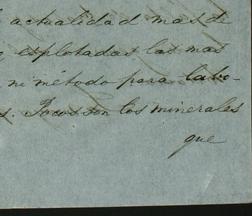 actualidad mas de
esplotadas las mas
ni método para labo-
s. Pocos son los minerales
que